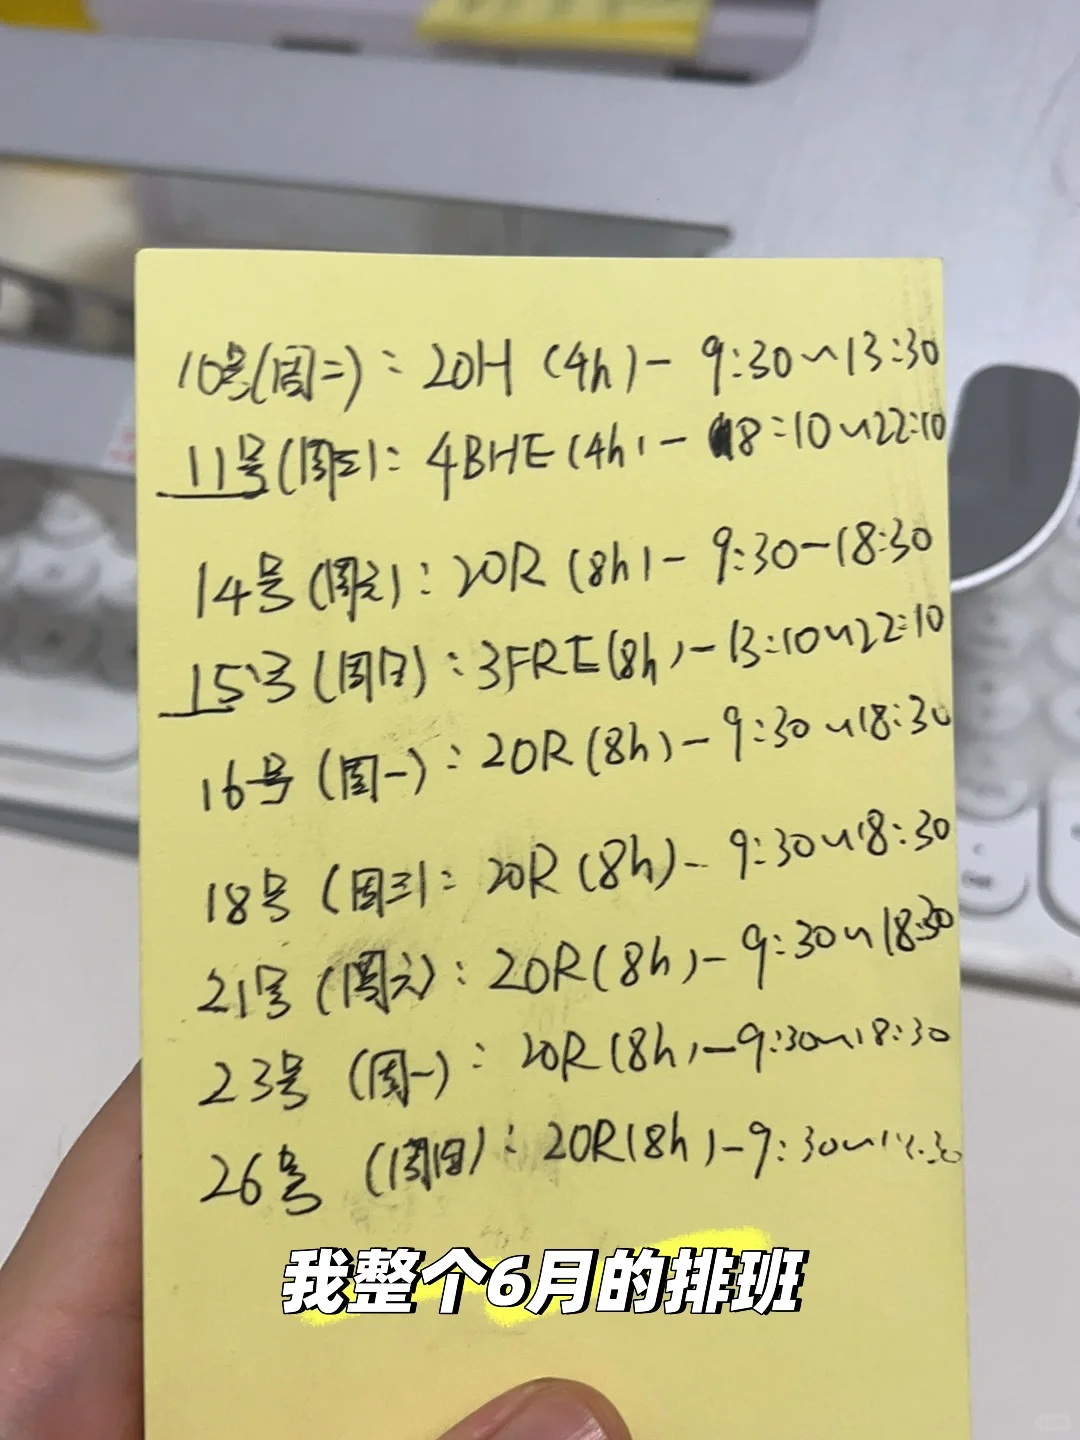 10号(周二): 20H (4h) - 9:30~13:30
11号(周三): 4BHE (4h) - 18:10~22:10
14号(周六): 20R (8h) - 9:30-18:30
15号(周日): 3FRE(8h) - 13:10~22:10
16号(周一): 20R(8h) - 9:30~18:30
18号(周三): 20R(8h) - 9:30~18:30
21号(周六): 20R(8h) - 9:30~18:30
23号(周一): 20R(8h) - 9:30~18:30
26号(周四): 20R(8h) - 9:30~
我整个6月的排班